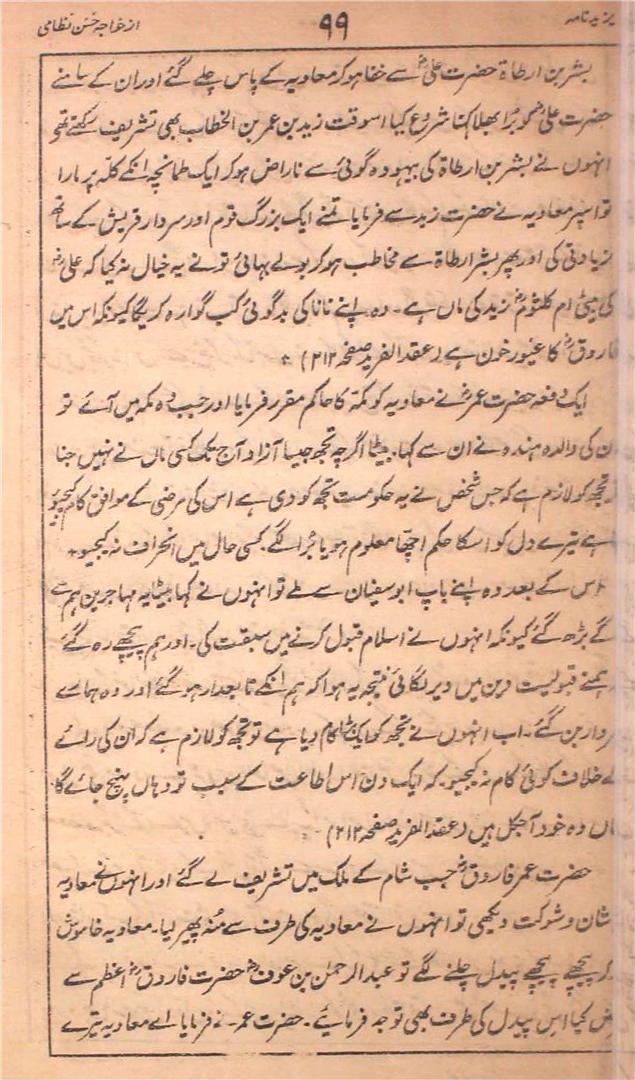 یزید نامہ ۹۹ از خواجہ حسن نظامی
بشر بن ارطاۃ حضرت علیؓ سے خفا ہو کر معاویہ کے پاس چلے گئے اور ان کے سامنے
حضرت علیؓ کو بُرا بھلا کہنا شروع کیا اسوقت زید بن عمر بن الخطاب بھی تشریف رکھتے تھے
انہوں نے بشر بن ارطاۃ کی بیہودہ گوئی سے ناراض ہو کر ایک طمانچہ انکے کلّہ پر مارا
تو اسپر معاویہ نے حضرت زید سے فرمایا تمنے ایک بزرگ قوم اور سردار قریش کے ساتھ
زیادتی کی اور پھر بشر ارطاۃ سے مخاطب ہو کر بولے بھائی تو نے یہ خیال نہ کیا کہ علیؓ
کی بیٹی ام کلثومؓ زید کی ماں ہے۔ وہ اپنے نانا کی بدگوئی کب گوارہ کریگا کیونکہ اس میں
فاروقؓ کا غیور خون ہے (عقد الفرید صفحہ ۲۱۲)
ایک دفعہ حضرت عمرؓ نے معاویہ کو مکّہ کا حاکم مقرر فرمایا اور جب وہ مکہ میں آئے تو
ان کی والدہ ہندہ نے ان سے کہا۔ بیٹا اگرچہ تجھ جیسا آزاد آج تک کسی ماں نے نہیں جنا
تجھ کو لازم ہے کہ جس شخص نے یہ حکومت تجھ کو دی ہے اس کی مرضی کے موافق کام کیجیو
تیرے دل کو اسکا حکم اچھا معلوم ہو یا بُرا لگے۔ کسی حال میں انحراف نہ کیجیو٭
اس کے بعد وہ اپنے باپ ابوسفیان سے ملے تو انہوں نے کہا بیٹا یہ مہاجرین ہم سے
آگے بڑھ گئے کیونکہ انہوں نے اسلام قبول کرنے میں سبقت کی۔ اور ہم پیچھے رہ گئے
ہمنے قبولیت دین میں دیر لگائی نتیجہ یہ ہوا کہ ہم انکے تابعدار ہو گئے اور وہ ہمارے
سردار بن گئے۔ اب انہوں نے تجھ کو ایک بڑا کام دیا ہے تو تجھ کو لازم ہے کہ ان کی رائے
کے خلاف کوئی کام نہ کیجیو۔ کہ ایک دن اس اطاعت کے سبب تو وہاں پہنچ جائے گا
جہاں وہ خود آجکل ہیں (عقد الفرید صفحہ ۲۱۲)۔
حضرت عمر فاروقؓ جب شام کے ملک میں تشریف لے گئے اور انہوں نے معاویہ
شان و شوکت دیکھی تو انہوں نے معاویہ کی طرف سے مُنہ پھیر لیا۔ معاویہ خاموش
پیچھے پیچھے پیدل چلنے لگے تو عبد الرحمٰن بن عوفؓ حضرت فاروقؓ اعظم سے
عرض کیا اس پیدل کی طرف بھی توجہ فرمائیے۔ حضرت عمر نے فرمایا اے معاویہ تیرے